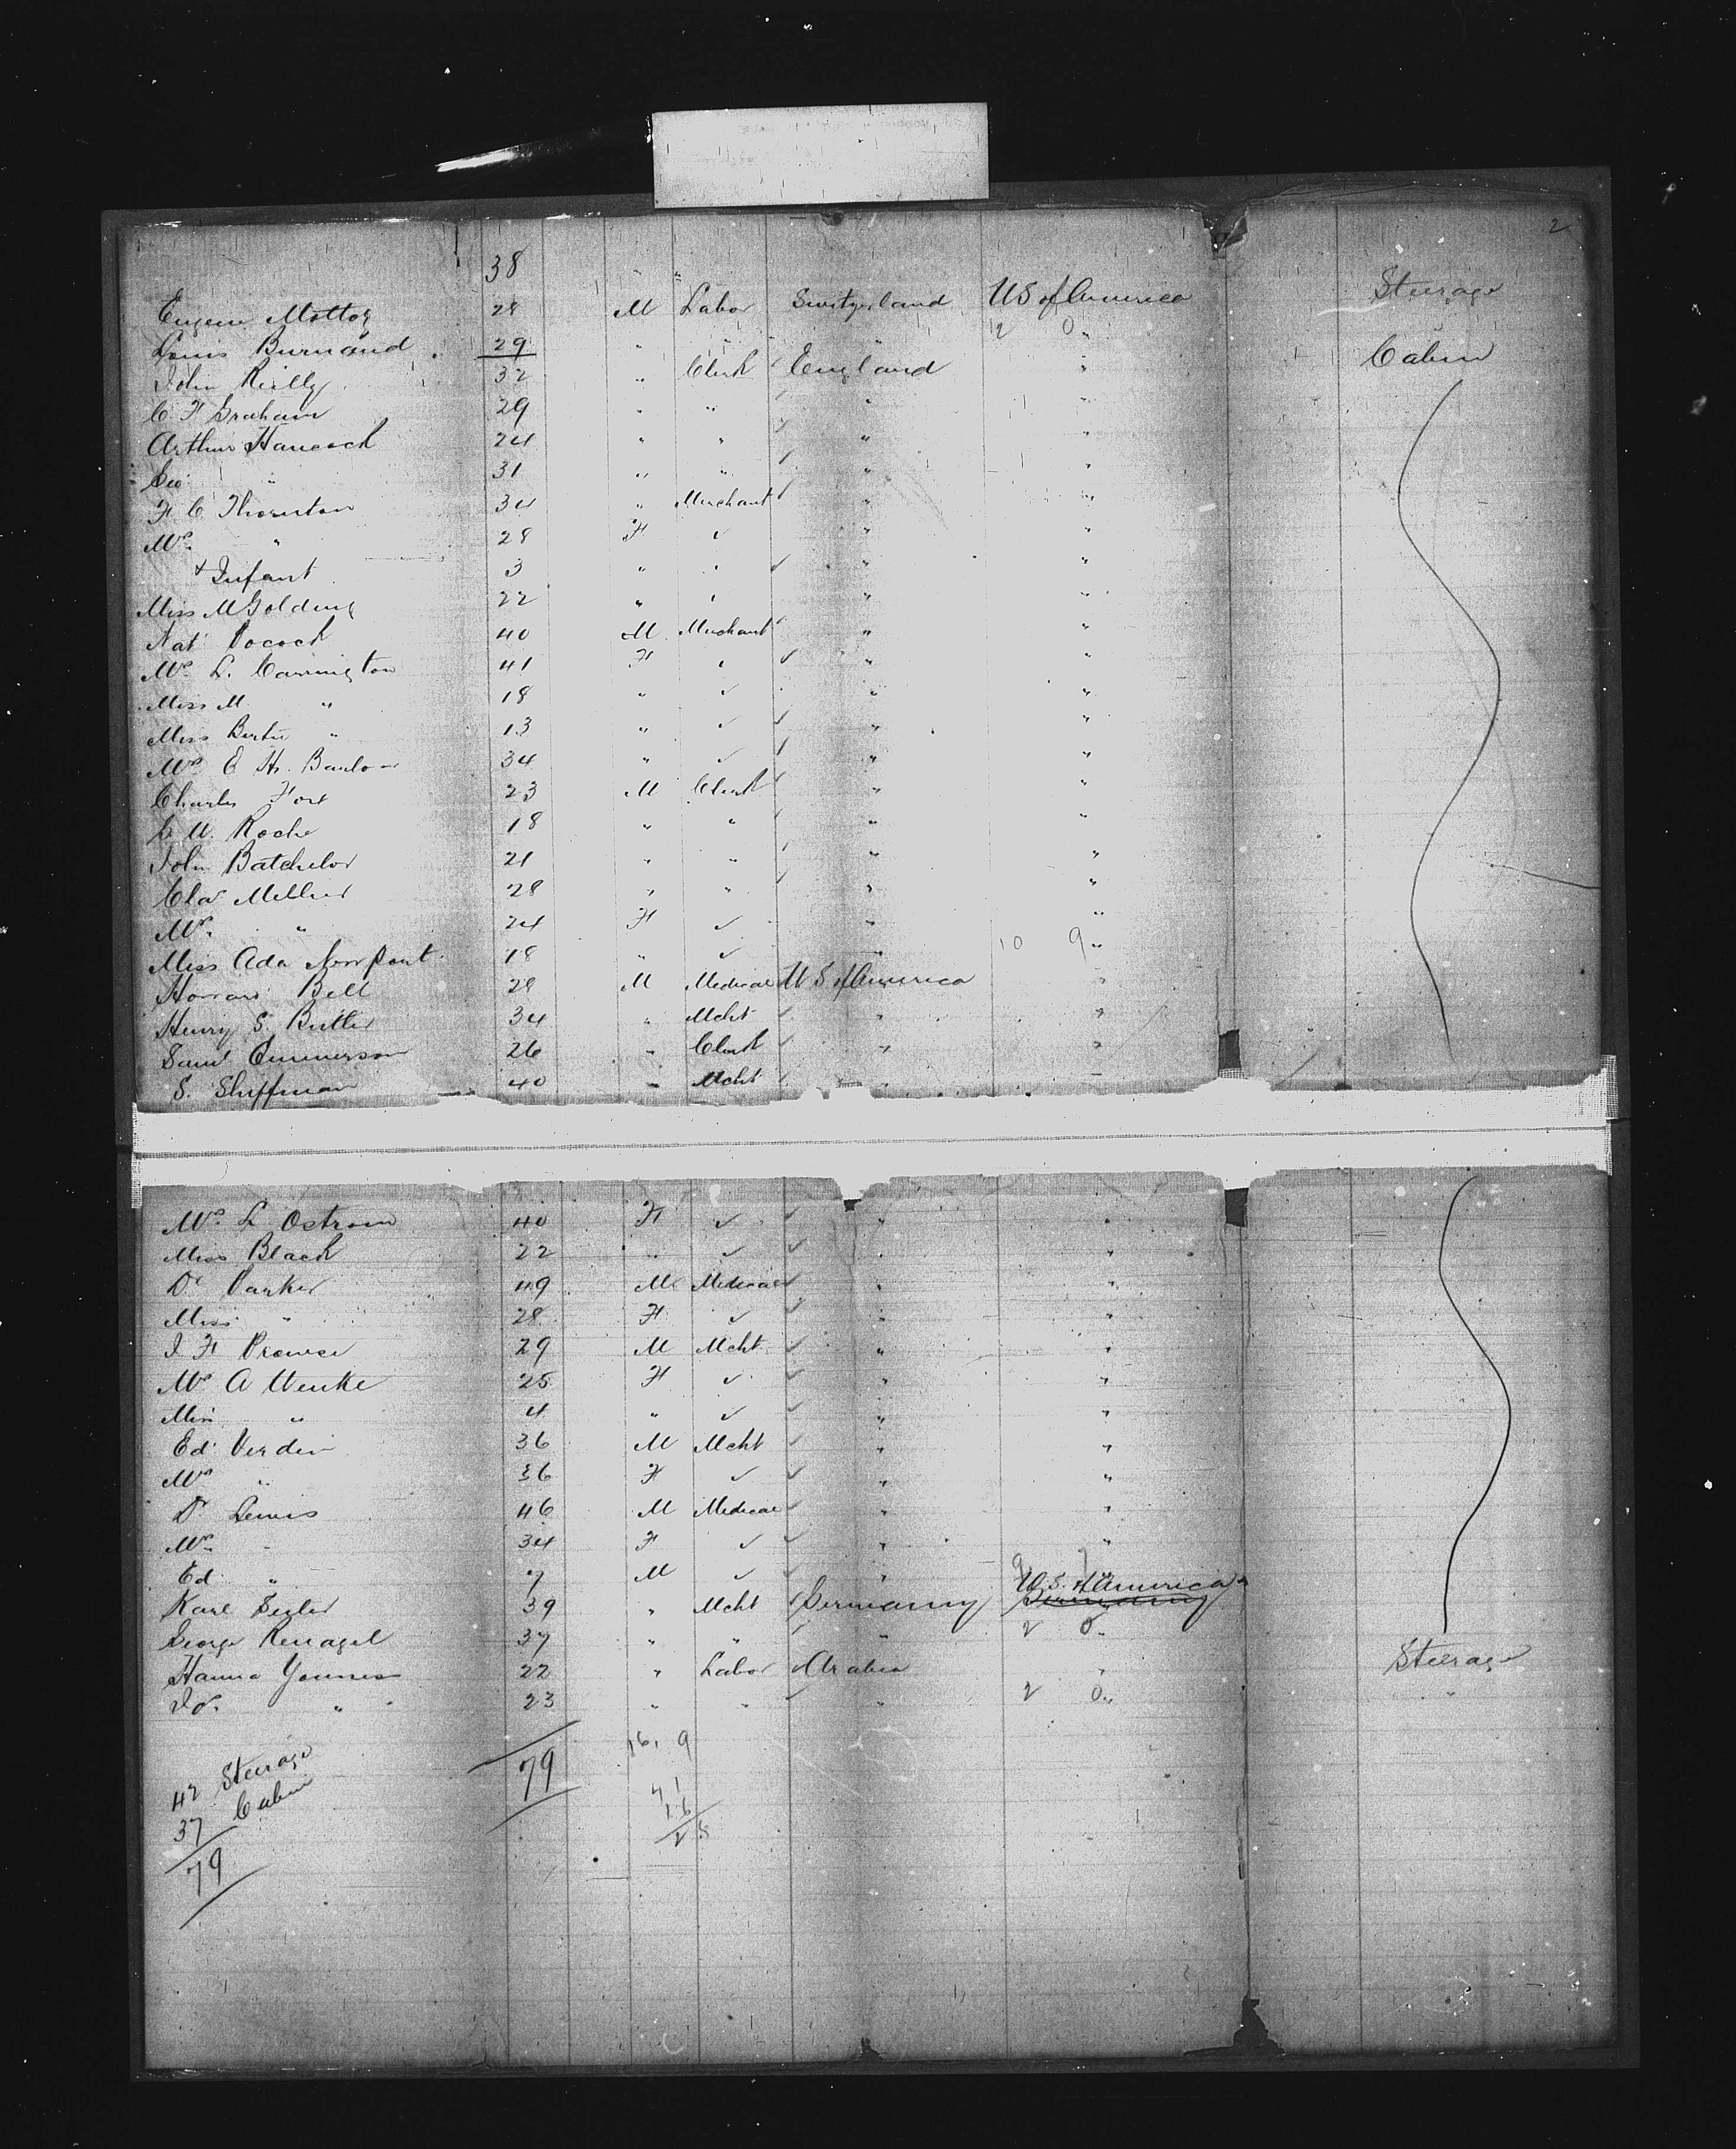 2
38
Eugene Mottoz 28 M Labor Switzerland US of America Steerage
Louis Burnand 29 " " " 12 0 "
John Reilly 32 " Clerk England " Cabin
C F Graham 29 " " " "
Arthur Hancock 24 " " " "
Geo " 31 " " " "
F. C. Thornton 34 " Merchant " "
Mrs " 28 F ✓ " "
+ Infant 3 " " " "
Miss M Golding 22 " " " "
Nat Pocock 40 M Merchant " "
Mrs L. Carrington 41 F ✓ " "
Miss M " 18 " ✓ " "
Miss Bertie " 13 " ✓ " "
Mrs E H. 34 " ✓ " "
Charles Fox 23 M Clerk " "
C. W. Roche 18 " " " "
John Batchelor 21 " " " "
28 " " " "
Mrs " 24 F ✓ " "
Miss Ada 18 " ✓ " 10 9 "
Howard Bell 28 M Medical U S of America "
Henry S. Butler 34 " Mcht " "
Saml Emmerson 26 " Clerk " "
S. Shiffman 40 " Mcht " "
Mrs L Ostrom 40 F ✓ " "
Miss Black 22 " ✓ " "
Dr Parker 49 M Medical " "
Miss " 28 F ✓ " "
J F Prowse 29 M Mcht " "
Mrs A Wenke 25 F ✓ " "
Miss " 4 " ✓ " "
Ed Verdin 36 M Mcht " "
Mrs " 36 F ✓ " "
Dr Lewis 46 M Medical " "
Mrs " 34 F ✓ " "
Ed " 7 M ✓ " 9 7
Karl 39 " Mcht Germany U.S. of America Germany
George 37 " " " 2 0 "
22 " Labor Arabia " Steerage
" 23 " " " 2 0 " "
16, 9
42 Steerage 79
37 Cabin
79